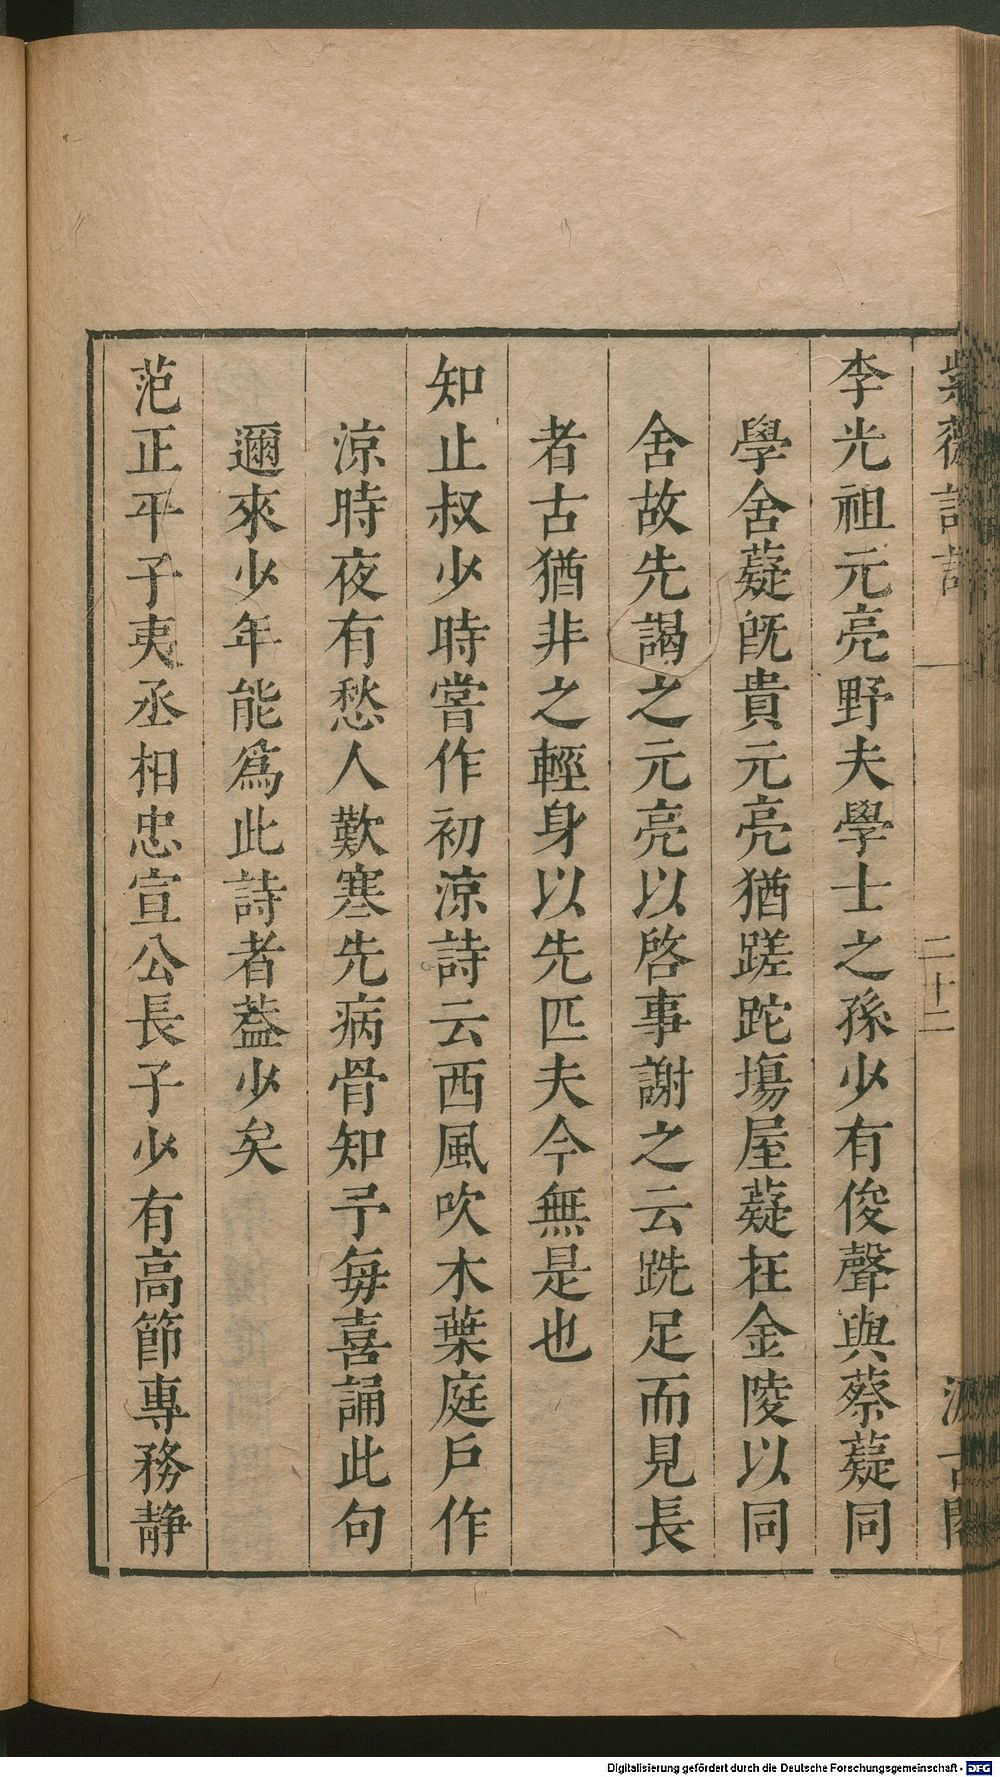 紫薇詩話
二十二
汲古閣
李光祖元亮野夫學士之孫少有俊聲與蔡薿同
學舍薿旣貴元亮猶蹉跎塲屋薿在金陵以同
舍故先謁之元亮以啓事謝之云跣足而見長
者古猶非之輕身以先匹夫今無是也
知止叔少時嘗作初涼詩云西風吹木葉庭戶作
涼時夜有愁人歎寒先病骨知予每喜誦此句
邇來少年能爲此詩者蓋少矣
范正平子夷丞相忠宣公長子少有高節專務靜
Digitalisierung gefördert durch die Deutsche Forschungsgemeinschaft - DFG